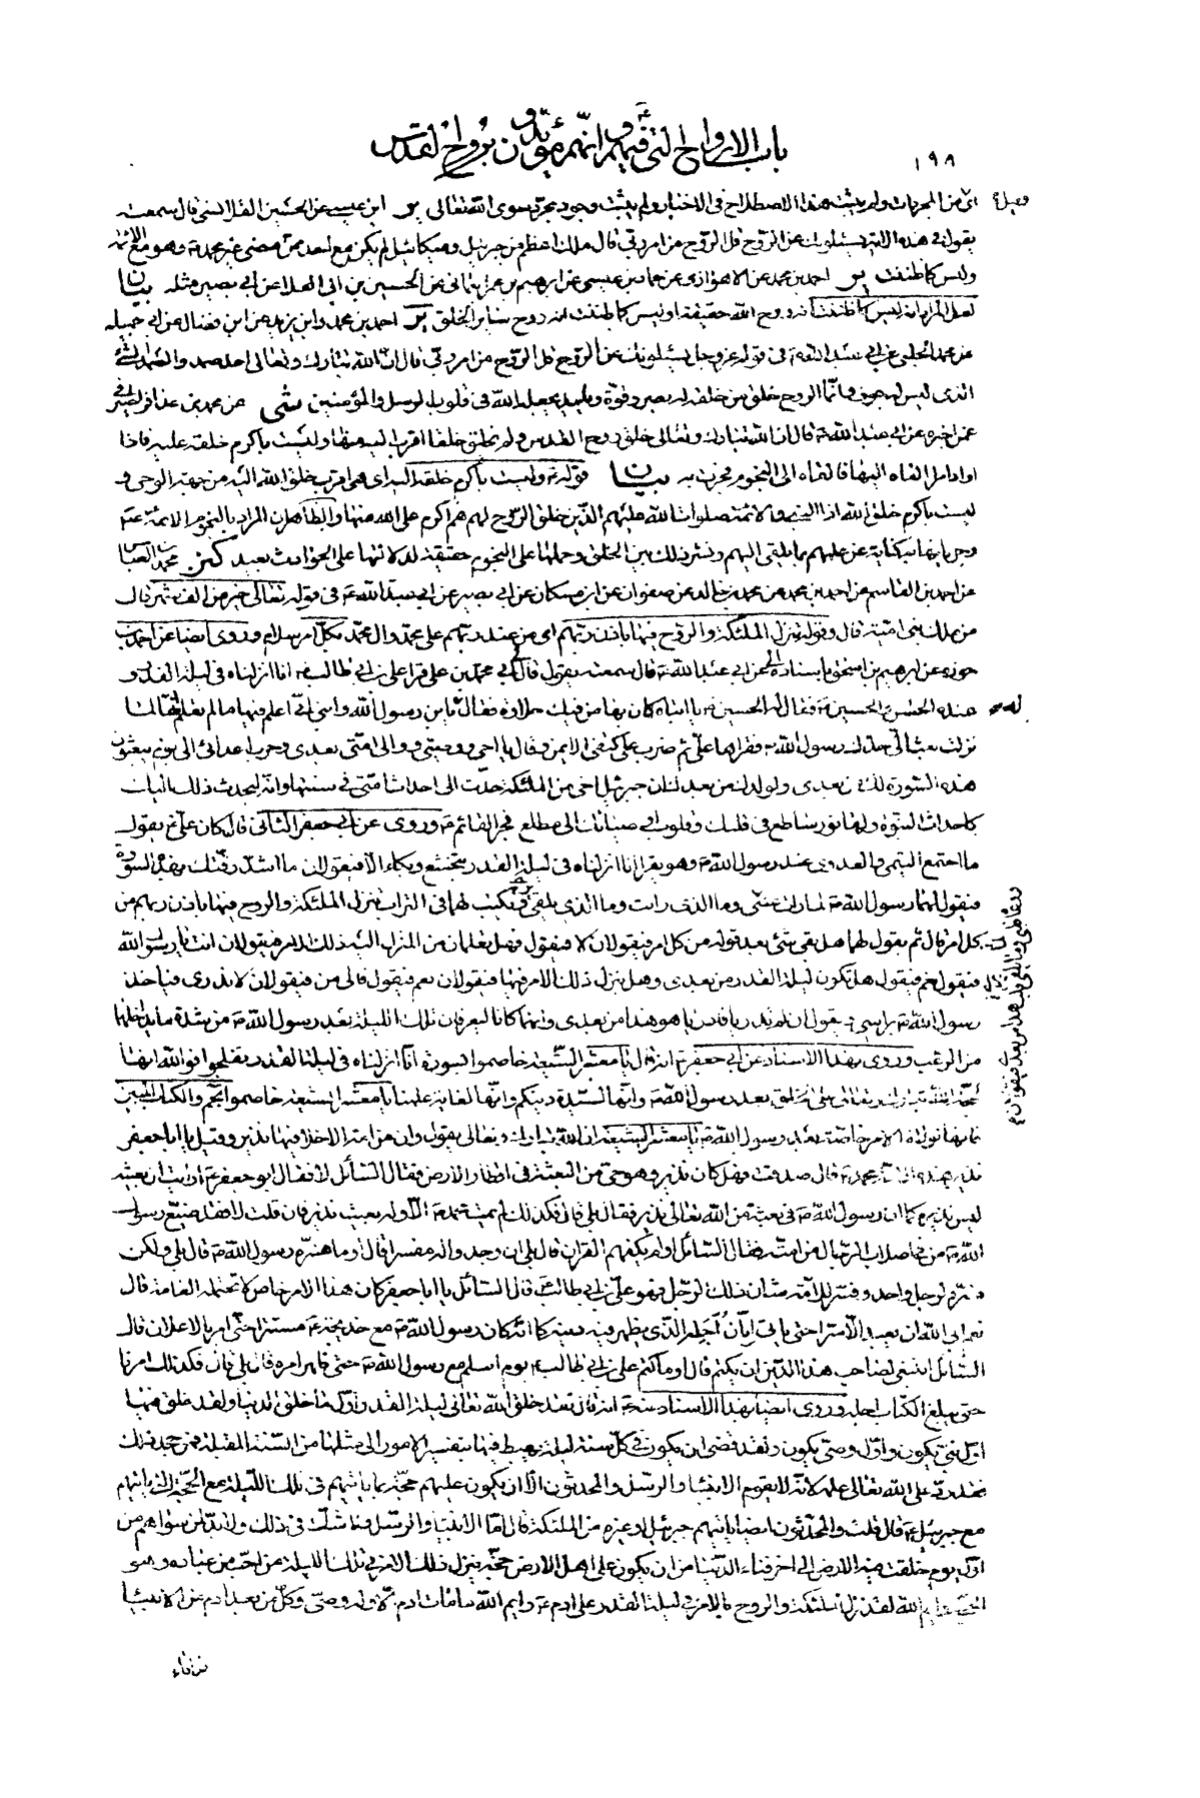 باب الارواح التي فيهم وانهم مؤيدون بروح القدس
١٩٨
اى من المجردات ولم يثبت هذا الاصطلاح فى الاخبار ولم يثبت وجود مجرد سوى الله تعالى ير ابن عيسى عن الحسين القلانسى قال سمعته
يقول فى هذه الاية يسئلونك عن الروح قل الروح من امر ربى قال ملك اعظم من جبرئيل وميكائيل لم يكن مع احد ممن مضى غير محمد ص وهو مع الائمة
وليس كما ظننت ير احمد بن محمد عن الاهوازى عن حماد بن عيسى عن ابرهيم بن عمر اليمانى عن الحسين بن ابى العلا عن ابى بصير مثله بيان
لعل المراد انه ليس كما ظننت انه روح الله حقيقة او ليس كما ظننت انه روح سائر الخلق ير احمد بن محمد وابن يزيد عن ابن فضال عن ابى جميلة
عن محمد الحلبى عن ابى عبد الله ع فى قوله عز وجل يسئلونك عن الروح قل الروح من امر ربى قال ان الله تبارك وتعالى احد صمد والصمد الشئ
الذى ليس له جوف وانما الروح خلق من خلقه له بصر وقوة وتاييد يجعله الله فى قلوب الرسل والمؤمنين شى عن محمد بن عذافر الصيرفى
عمن اخبره عن ابى عبد الله ع قال ان الله تبارك وتعالى خلق روح القدس ولم يخلق خلقا اقرب اليه منها وليست باكرم خلقه عليه فاذا
اراد امرا القاه اليها فالقاه الى النجوم فجرت به بيان قوله ع وليست باكرم خلقه اليه اى هى اقرب خلق الله اليه من جهة الوحى و
ليست باكرم خلق الله اذ النبى والائمة صلوات الله عليهم الذين خلق الروح لهم هم اكرم على الله منها والظاهر ان المراد بالنجوم الائمة ع
وجريانها به كناية عن علمهم بما يلقى اليهم ونشر ذلك بين الخلق وحملها على النجوم حقيقة لدلالتها على الحوادث بعيد كنز محمد بن العباس
عن احمد بن القاسم عن احمد بن محمد عن محمد بن خالد عن صفوان عن ابن مسكان عن ابى بصير عن ابى عبد الله ع فى قوله تعالى خير من الف شهر قال
من ملك بنى امية قال وقوله تنزل الملئكة والروح فيها باذن ربهم اى من عند ربهم على محمد وال محمد بكل امر سلام وروى ايضا عن احمد بن
هوذه عن ابرهيم بن اسحق باسناده عن ابى عبد الله ع قال سمعته يقول قال لى ابى محمد بن على قرا على بن ابى طالب ع انا انزلناه فى ليلة القدر و
عنده الحسن والحسين ع فقال له الحسين ع يا ابتاه كان بها من فيك حلاوة فقال له يابن رسول الله وابنى انى اعلم فيها ما لم تعلم انها لما
نزلت بعث الى جدك رسول الله ص فقراها على ثم ضرب على كتفى الايمن وقال يا اخى ووصيى ووالى امتى بعدى وحرب اعدائى الى يوم يبعثون
هذه السورة لك من بعدى ولولدك من بعدك ان جبرئيل اخى من الملئكة حدث الى احداث امتى فى سنتها وانه ليحدث ذلك اليك
كاحداث النبوة ولها نور ساطع فى قلبك وقلوب اوصيائك الى مطلع فجر القائم ع وروى عن ابى جعفر الثانى ع قال كان على ع يقول
ما اجتمع التيمى والعدوى عند رسول الله ص وهو يقرا انا انزلناه فى ليلة القدر بتخشع وبكاء الا فيقولان ما اشد رقتك بهذه السورة
فيقول لهما رسول الله ص لما رات عينى ووعى قلبى
ولما يلقى قلب هذا من بعدى فيقولان
وما الذى رايت وما الذى يلقى فيكتب لهما فى التراب تنزل الملئكة والروح فيها باذن ربهم من
كل امر قال ثم يقول لهما هل بقى شئ بعد قوله من كل امر فيقولان لا فيقول فهل تعلمان من المنزل اليه ذلك الامر فيقولان انت يا رسول الله
فيقول نعم فيقول هل تكون ليلة القدر من بعدى وهل ينزل ذلك الامر فيها فيقولان نعم فيقول فالى من فيقولان لا ندرى فياخذ
رسول الله ص براسى فيقول ان لم تدريا فادريا هو هذا من بعدى وانهما كانا ليعرفان تلك الليلة بعد رسول الله ص من شدة ما يداخلهما
من الرعب وروى بهذا الاسناد عن ابى جعفر ع انه قال يا معشر الشيعة خاصموا بسورة انا انزلناه فى ليلة القدر تفلجوا فوالله انها
لحجة الله تبارك وتعالى على الخلق بعد رسول الله ص وانها لسيدة دينكم وانها لغاية علمنا يا معشر الشيعة خاصموا بحم والكتاب المبين
فانها لولاة الامر خاصة بعد رسول الله ص يا معشر الشيعة ان الله تبارك وتعالى يقول وان من امة الا خلا فيها نذير وقيل يا ابا جعفر
نذير هذه الامة محمد ص قال صدقت فهل كان نذير وهو حى من البعثة فى اقطار الارض فقال السائل لا فقال ابو جعفر ع ارايت ان بعيثه
ليس نذيره كما ان رسول الله ص فى بعثته من الله تعالى نذير فقال بلى قال فكذلك لم يمت محمد ص الا وله بعيث نذير فان قلت لا فقد ضيع رسول
الله ص من فى اصلاب الرجال من امته فقال السائل اولم يكفهم القران قال بلى ان وجدوا له مفسرا قال اوما فسره رسول الله ص قال بلى ولكن
فسره لرجل واحد وفسر للامة شان ذلك الرجل وهو على بن ابى طالب ع قال السائل يا ابا جعفر كان هذا الامر خاص لا تحتمله العامة قال
نعم ابى الله ان يعبد الا سرا حتى ياتى ابان اجله الذى يظهر فيه دينه كما انه كان رسول الله ص مع خديجة ع مستترا حتى امر بالاعلان قال
السائل اينبغى لصاحب هذا الدين ان يكتم قال اوما كتم على بن ابى طالب ع يوم اسلم مع رسول الله ص حتى ظهر امره قال بلى قال فكذلك امرنا
حتى يبلغ الكتاب اجله وروى ايضا بهذا الاسناد عنه ع انه قال لقد خلق الله تعالى ليلة القدر اول ما خلق الدنيا ولقد خلق فيها
اول نبى يكون واول وصى يكون ولقد قضى ان يكون فى كل سنة ليلة يهبط فيها بتفسير الامور الى مثلها من السنة المقبلة فمن جحد ذلك
فقد رد على الله تعالى علمه لانه لا يقوم الانبياء والرسل والمحدثون الا ان يكون عليهم حجة بما ياتيهم فى تلك الليلة مع الحجة التى ياتيهم
مع جبرئيل ع قال قلت والمحدثون ايضا ياتيهم جبرئيل او غيره من الملئكة قال اما الانبياء والرسل فلا شك فى ذلك ولا بد لمن سواهم من
اول يوم خلقت فيه الارض الى اخر فناء الدنيا من ان يكون على اهل الارض حجة ينزل ذلك الامر فى تلك الليلة من احب من عباده وهو
الحجة وايم الله لقد نزل الملئكة والروح بالامر فى ليلة القدر على ادم ع وايم الله ما مات ادم الا وله وصى وكل من بعد ادم من الانبياء